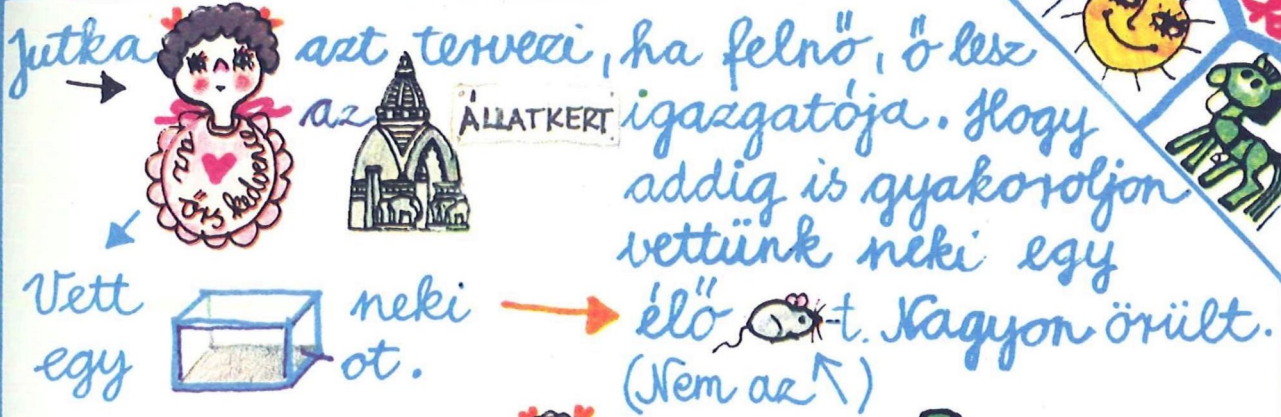 Jutka azt tervezi, ha felnő, ő lesz
az ÁLLATKERT igazgatója. Hogy
addig is gyakoroljon
vettünk neki egy
élő -t. Nagyon örült.
(Nem az ↖)
az őrs kedvence
Vett neki
egy -ot.